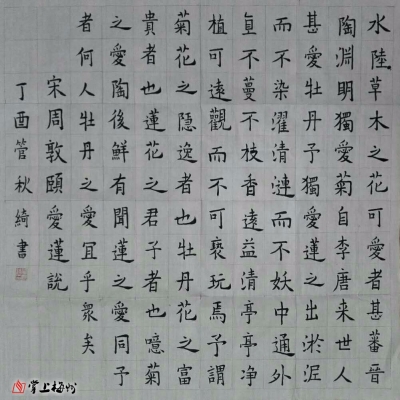 水陸草木之花可愛者甚蕃晉
陶淵明獨愛菊自李唐来世人
甚愛牡丹予獨愛蓮之出淤泥
而不染濯清漣而不妖中通外
直不蔓不枝香遠益清亭亭净
植可遠觀而不可褻玩焉予謂
菊花之隱逸者也牡丹花之富
貴者也蓮花之君子者也噫菊
之愛陶後鮮有聞蓮之愛同予
者何人牡丹之愛冝乎衆矣
宋周敦頤愛蓮說
丁酉管秋綺書
掌上梅州